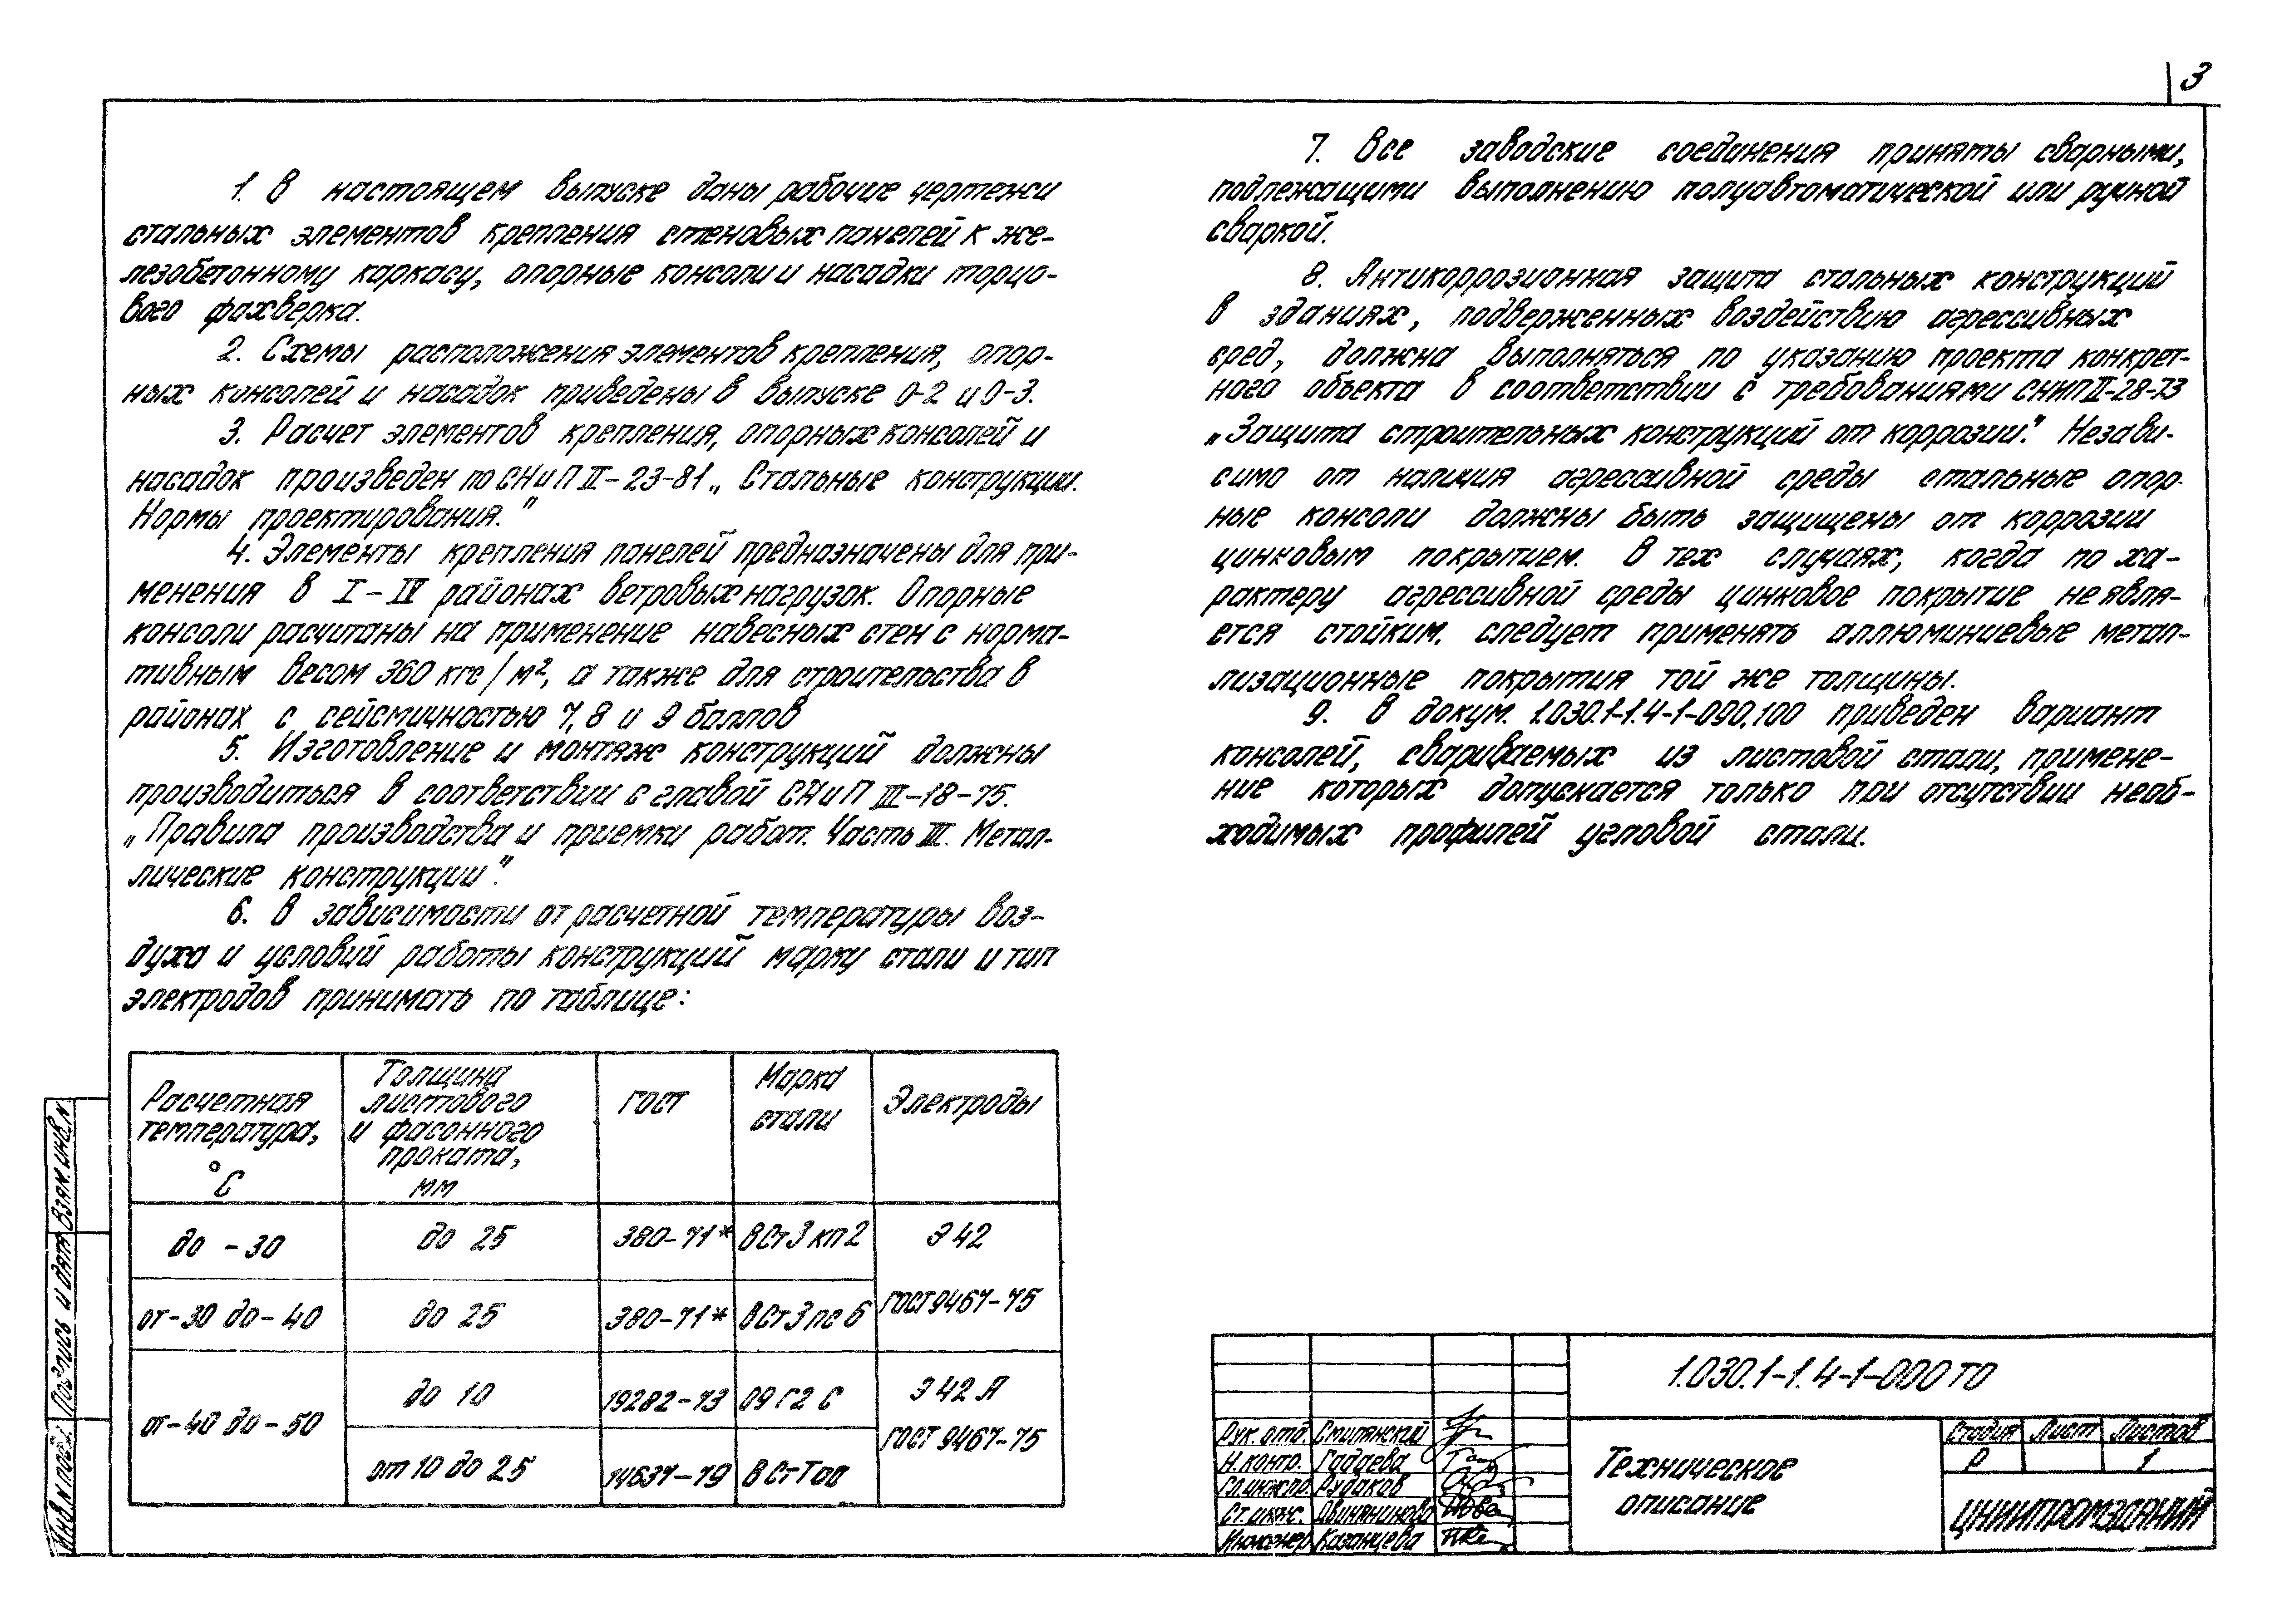 3
1. В настоящем выпуске даны рабочие чертежи
стальных элементов крепления стеновых панелей к же-
лезобетонному каркасу, опорные консоли и насадки торцо-
вого фахверка.
2. Схемы расположения элементов крепления, опор-
ных консолей и насадок приведены в выпуске 0-2 и 0-3.
3. Расчет элементов крепления, опорных консолей и
насадок произведен по СНиП II-23-81 „Стальные конструкции.
Нормы проектирования."
4. Элементы крепления панелей предназначены для при-
менения в I-IV районах ветровых нагрузок. Опорные
консоли расчитаны на применение навесных стен с норма-
тивным весом 360 кгс/м², а также для строительства в
районах с сейсмичностью 7, 8 и 9 баллов
5. Изготовление и монтаж конструкций должны
производиться в соответствии с главой СНиП III-18-75.
„Правила производства и приемки работ. Часть III. Метал-
лические конструкции".
6. В зависимости от расчетной температуры воз-
духа и условий работы конструкций марку стали и тип
электродов принимать по таблице:
Расчетная
температура,
°С
Толщина
листового
и фасонного
проката,
мм
ГОСТ
Марка
стали
Электроды
до -30
до 25
380-71*
ВСт3кп2
Э42
от -30 до -40
до 25
380-71*
ВСт3пс6
ГОСТ 9467-75
от -40 до -50
до 10
19282-73
09Г2С
Э42А
ГОСТ 9467-75
от 10 до 25
14637-79
ВСтТоп
7. Все заводские соединения приняты сварными,
подлежащими выполнению полуавтоматической или ручной
сваркой.
8. Антикоррозионная защита стальных конструкций
в зданиях, подверженных воздействию агрессивных
сред, должна выполняться по указанию проекта конкрет-
ного объекта в соответствии с требованиями СНиП II-28-73
„Защита строительных конструкций от коррозии." Незави-
симо от наличия агрессивной среды стальные опор-
ные консоли должны быть защищены от коррозии
цинковым покрытием. В тех случаях, когда по ха-
рактеру агрессивной среды цинковое покрытие не явля-
ется стойким, следует применять аллюминиевые метал-
лизационные покрытия той же толщины.
9. В докум. 1.030.1-1.4-1-090.100 приведен вариант
консолей, свариваемых из листовой стали, примене-
ние которых допускается только при отсутствии необ-
ходимых профилей угловой стали.
1.030.1-1.4-1-000ТО
Рук. отд. Смилянский
Н. контр. Гадаева
Гл. инж. пр. Рудаков
Ст. инж. Двинянинова
Инженер Казанцева
Техническое
описание
Стадия Лист Листов
Р 1
ЦНИИПРОМЗДАНИЙ
Взам. инв. N
Подпись и дата
Инв. N подл.